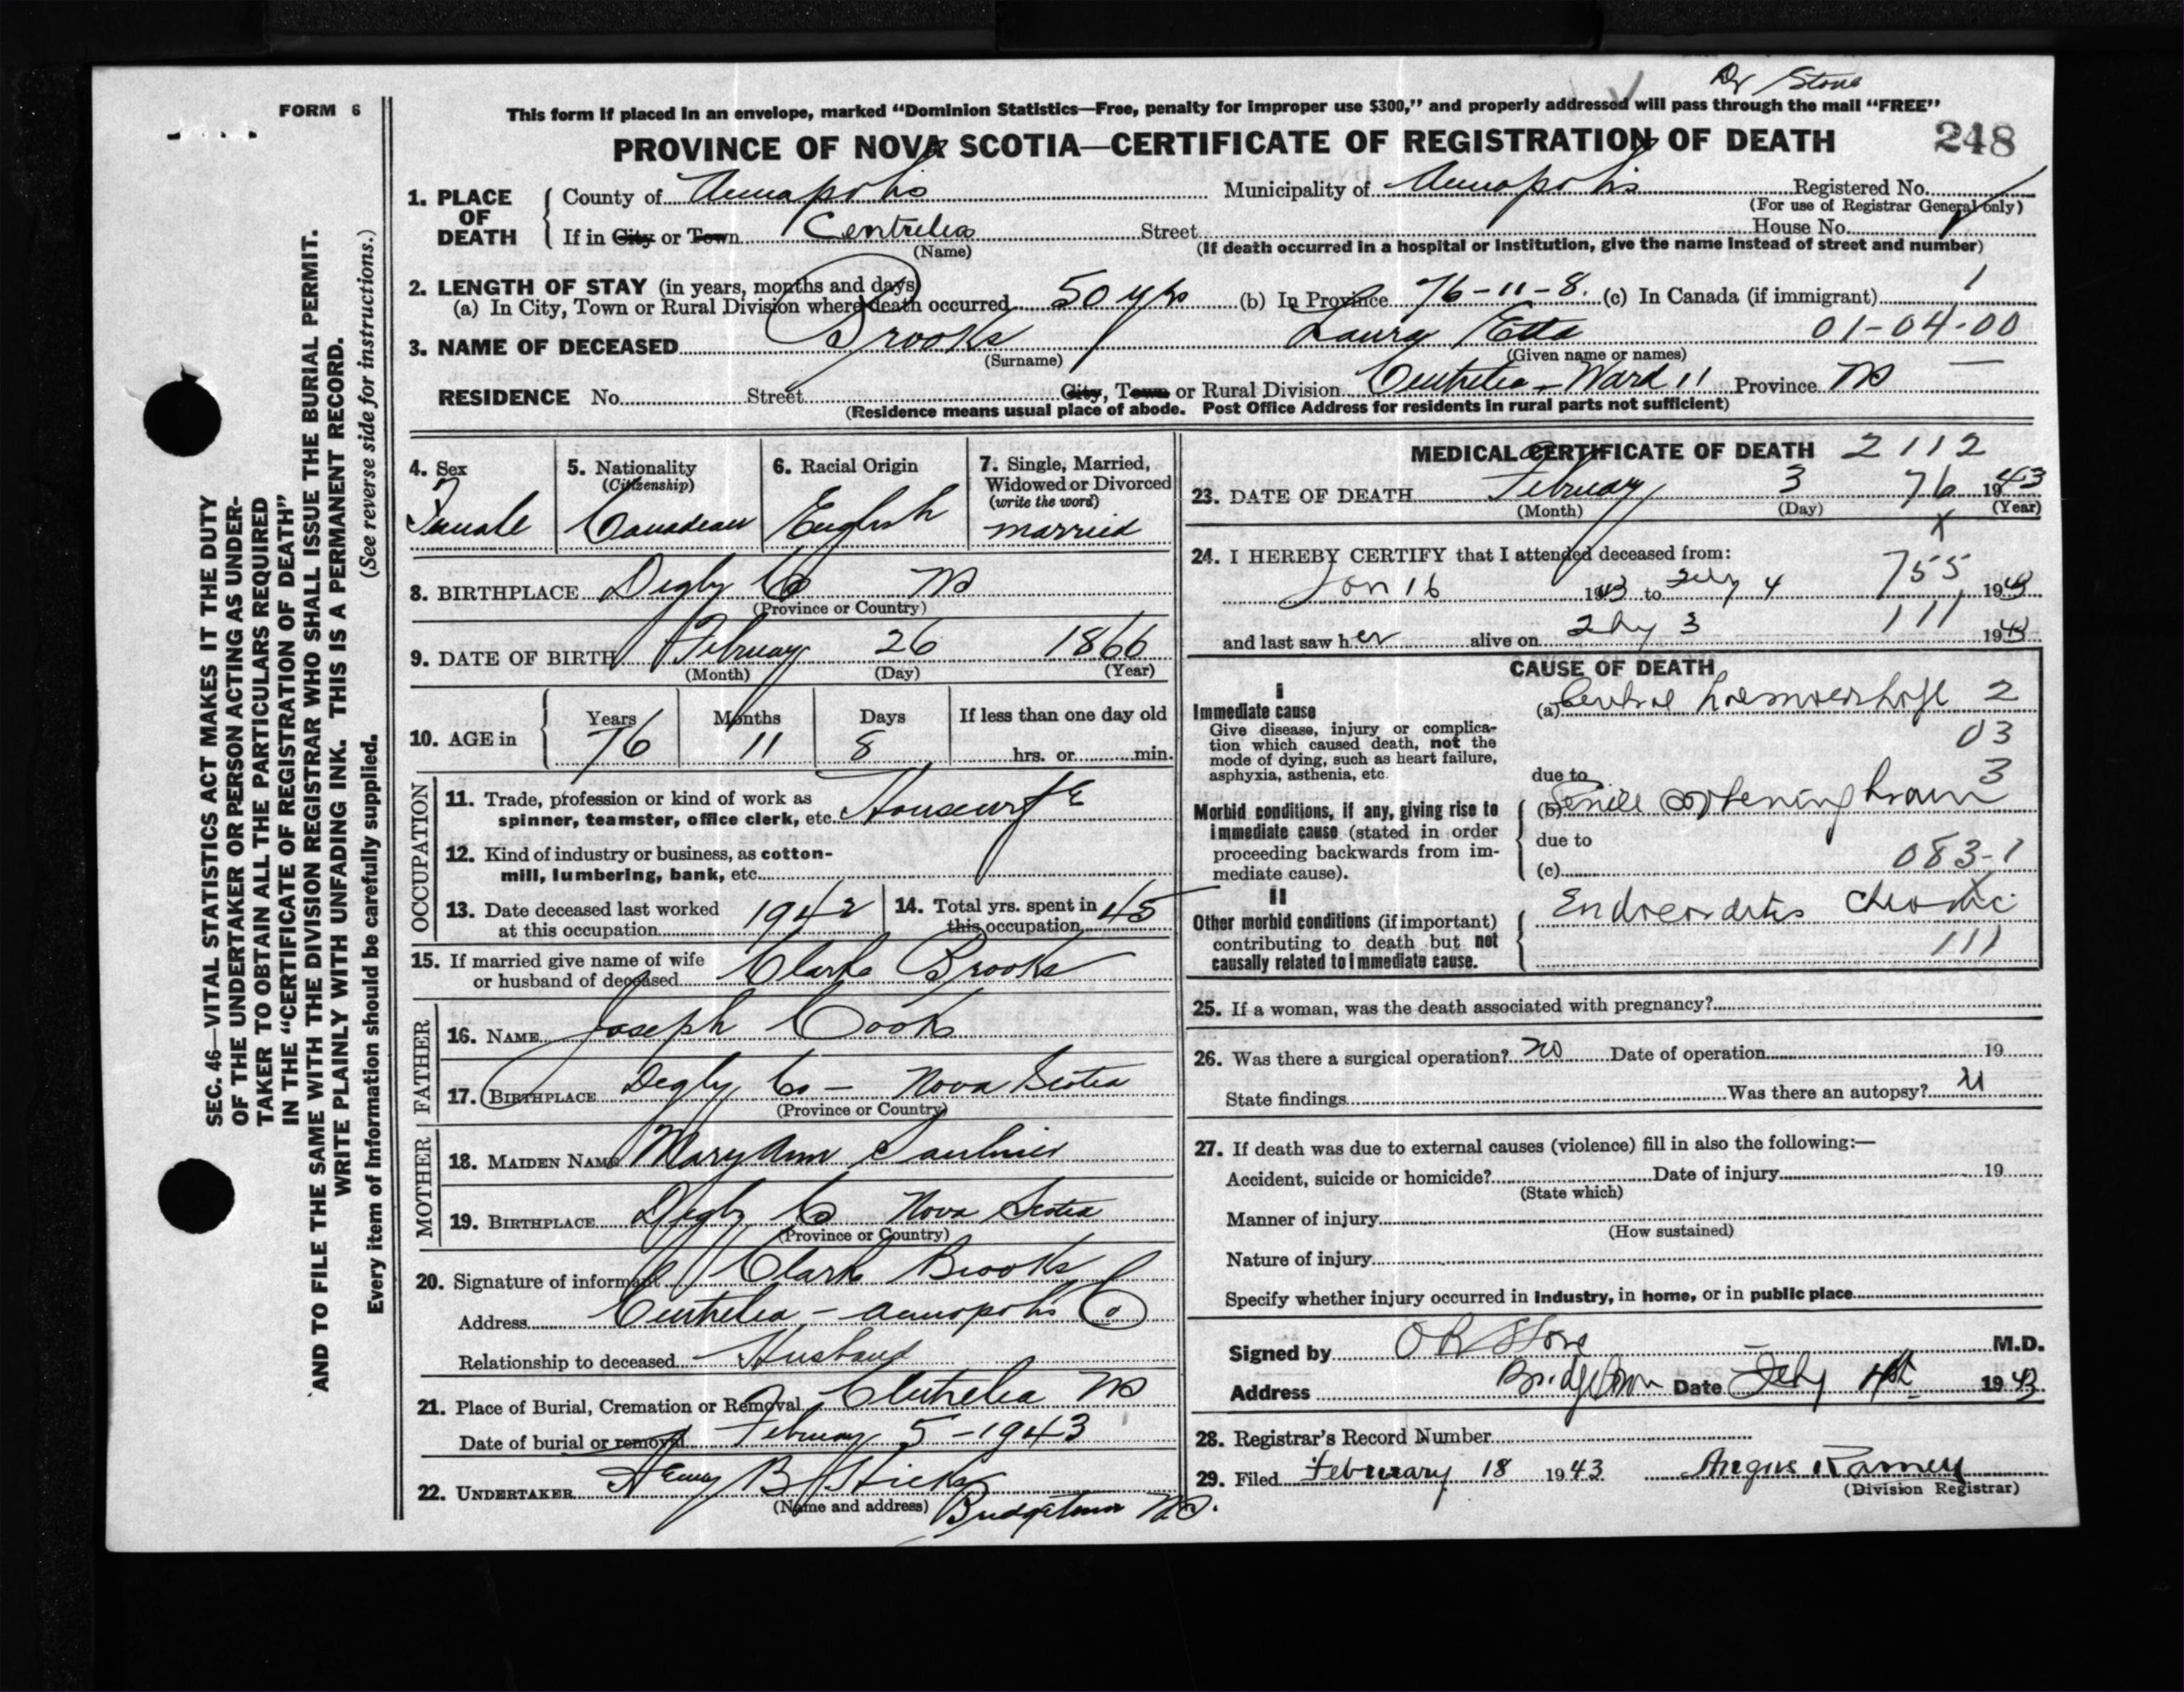 Dr Stone
FORM 6
This form if placed in an envelope, marked "Dominion Statistics—Free, penalty for improper use $300," and properly addressed will pass through the mail "FREE"
PROVINCE OF NOVA SCOTIA—CERTIFICATE OF REGISTRATION OF DEATH 248
SEC. 46—VITAL STATISTICS ACT MAKES IT THE DUTY
OF THE UNDERTAKER OR PERSON ACTING AS UNDER-
TAKER TO OBTAIN ALL THE PARTICULARS REQUIRED
IN THE "CERTIFICATE OF REGISTRATION OF DEATH"
AND TO FILE THE SAME WITH THE DIVISION REGISTRAR WHO SHALL ISSUE THE BURIAL PERMIT.
WRITE PLAINLY WITH UNFADING INK. THIS IS A PERMANENT RECORD.
Every item of information should be carefully supplied. (See reverse side for instructions.)
1. PLACE OF DEATH County of Annapolis Municipality of Annapolis Registered No.
(For use of Registrar General only)
If in City or Town Centrelea Street House No.
(Name) (If death occurred in a hospital or institution, give the name instead of street and number)
2. LENGTH OF STAY (in years, months and days)
(a) In City, Town or Rural Division where death occurred 50 yrs (b) In Province 76-11-8. (c) In Canada (if immigrant) 1
3. NAME OF DECEASED Brooks Laura Etta 01-04-00
(Surname) (Given name or names)
RESIDENCE No. Street City, Town or Rural Division Centrelea - Ward 11 Province NS
(Residence means usual place of abode. Post Office Address for residents in rural parts not sufficient)
4. Sex 5. Nationality (Citizenship) 6. Racial Origin 7. Single, Married, Widowed or Divorced (write the word)
Female Canadian English married
8. BIRTHPLACE Digby Co NS
(Province or Country)
9. DATE OF BIRTH February 26 1866
(Month) (Day) (Year)
10. AGE in Years Months Days If less than one day old
76 11 8 hrs. or min.
OCCUPATION
11. Trade, profession or kind of work as
spinner, teamster, office clerk, etc. Housewife
12. Kind of industry or business, as cotton-
mill, lumbering, bank, etc.
13. Date deceased last worked at this occupation 1942 14. Total yrs. spent in this occupation 45
15. If married give name of wife
or husband of deceased Clark Brooks
FATHER
16. NAME Joseph Cook
17. BIRTHPLACE Digby Co - Nova Scotia
(Province or Country)
MOTHER
18. MAIDEN NAME Mary Ann Saulnier
19. BIRTHPLACE Digby Co Nova Scotia
(Province or Country)
20. Signature of informant Clark Brooks
Address Centrelea - Annapolis Co
Relationship to deceased Husband
21. Place of Burial, Cremation or Removal Centrelea NS
Date of burial or removal February 5-1943
22. UNDERTAKER B Hicks
(Name and address) Bridgetown NS.
MEDICAL CERTIFICATE OF DEATH 2112
23. DATE OF DEATH February 3 76 1943
(Month) (Day) (Year)
x
24. I HEREBY CERTIFY that I attended deceased from:
Jan 16 1943 to Feby 4 755 1943
and last saw her alive on Feby 3 111 1943
CAUSE OF DEATH
I
Immediate cause (a) Cerebral haemorrhage 2
Give disease, injury or complica-
tion which caused death, not the 03
mode of dying, such as heart failure,
asphyxia, asthenia, etc. due to 3
Morbid conditions, if any, giving rise to (b) Senile softening brain
immediate cause (stated in order due to
proceeding backwards from im- 083-1
mediate cause). (c)
II
Other morbid conditions (if important) Endocarditis chronic
contributing to death but not 111
causally related to immediate cause.
25. If a woman, was the death associated with pregnancy?
26. Was there a surgical operation? no Date of operation 19
State findings Was there an autopsy?
27. If death was due to external causes (violence) fill in also the following:—
Accident, suicide or homicide? Date of injury 19
(State which)
Manner of injury
(How sustained)
Nature of injury
Specify whether injury occurred in industry, in home, or in public place
Signed by Stone M.D.
Address Bridgetown Date Feby 4th 1943
28. Registrar's Record Number
29. Filed February 18 1943 Angus Ramey
(Division Registrar)